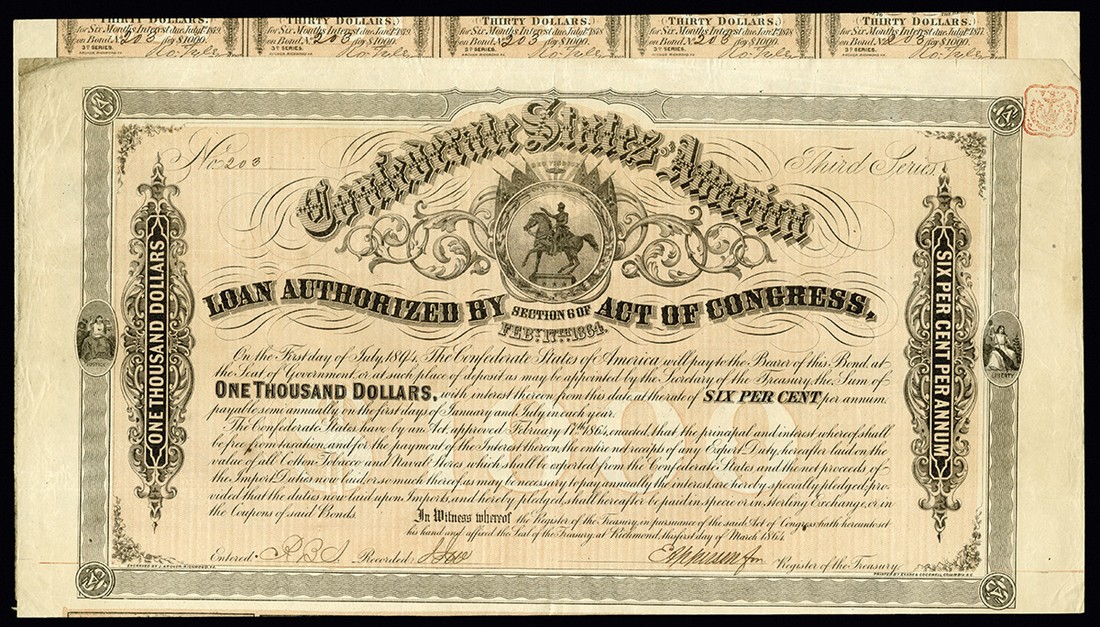 THIRTY DOLLARS. THIRTY DOLLARS. THIRTY DOLLARS. THIRTY DOLLARS. THIRTY DOLLARS.
for Six Months Interest due July 1st 1879. for Six Months Interest due Jan 1st 1879. for Six Months Interest due July 1st 1878 for Six Months Interest due Jan 1st 1878 for Six Months Interest due July 1st 1877.
on Bond No 203 for $1000. on Bond No 203 for $1000. on Bond No 203 for $1000. on Bond No 203 for $1000. on Bond No 203 for $1000.
3D SERIES. 3D SERIES. 3D SERIES. 3D SERIES. 3D SERIES.
No 203
Third Series.
Confederate States of America
DEO VINDICE
LOAN AUTHORIZED BY SECTION 6 OF ACT OF CONGRESS,
FEBY. 17TH 1864.
ONE THOUSAND DOLLARS
SIX PER CENT PER ANNUM
JUSTICE
LIBERTY
$1000
On the First day of July, 1894, The Confederate States of America will pay to the Bearer of this Bond, at
the Seat of Government, or at such place of deposit as may be appointed by the Secretary of the Treasury, the Sum of
ONE THOUSAND DOLLARS, with interest thereon from this date at the rate of SIX PER CENT per annum,
payable semi annually on the first days of January and July in each year.
The Confederate States have by an Act, approved February 17th 1864, enacted, that the principal and interest whereof shall
be free from taxation, and for the payment of the Interest thereon, the entire net receipts of any Export Duty, hereafter laid on the
value of all Cotton Tobacco and Naval Stores which shall be exported from the Confederate States and the net proceeds of
the Import Duties now laid, or so much thereof as may be necessary to pay annually the interest, are hereby specially pledged: pro-
vided that the duties now laid upon Imports, and hereby pledged, shall hereafter be paid in specie or in Sterling Exchange, or in
the Coupons of said Bonds.
In Witness whereof the Register of the Treasury, in pursuance of the said Act of Congress, hath hereunto set
his hand and affixed the Seal of the Treasury, at Richmond, this first day of March 1864.
Entered Recorded Register of the Treasury.
ENGRAVED BY J. ARCHER, RICHMOND, VA.
PRINTED BY EVANS & COGSWELL, COLUMBIA S.C.